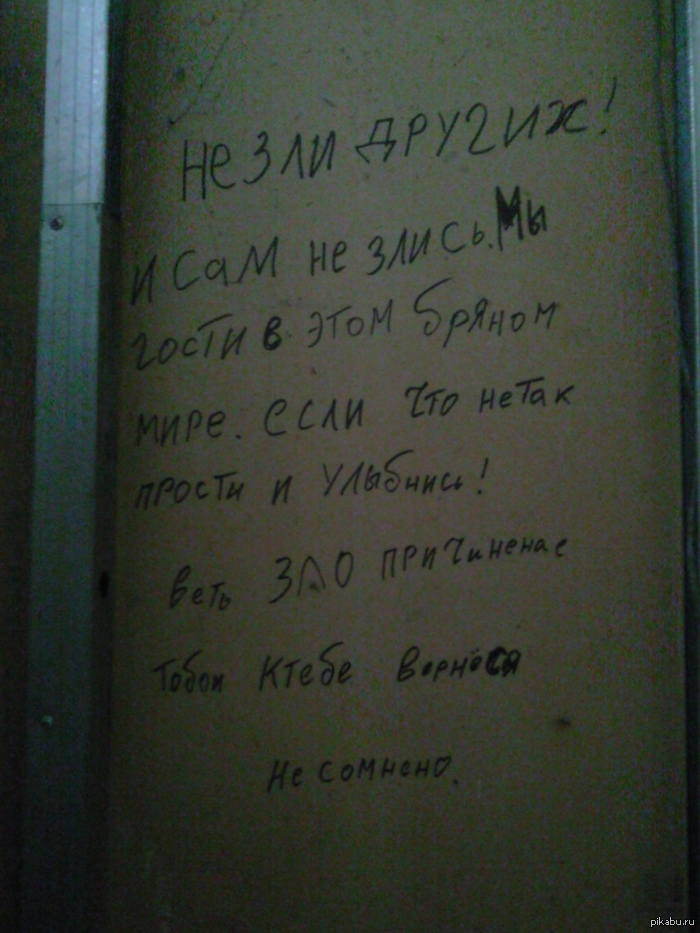 не зли других!
и сам не злись. Мы
гости в этом бряном
мире. если что не так
прости и улыбнись!
веть зло причиненае
тобои ктебе вернёся
не сомнено.
pikabu.ru